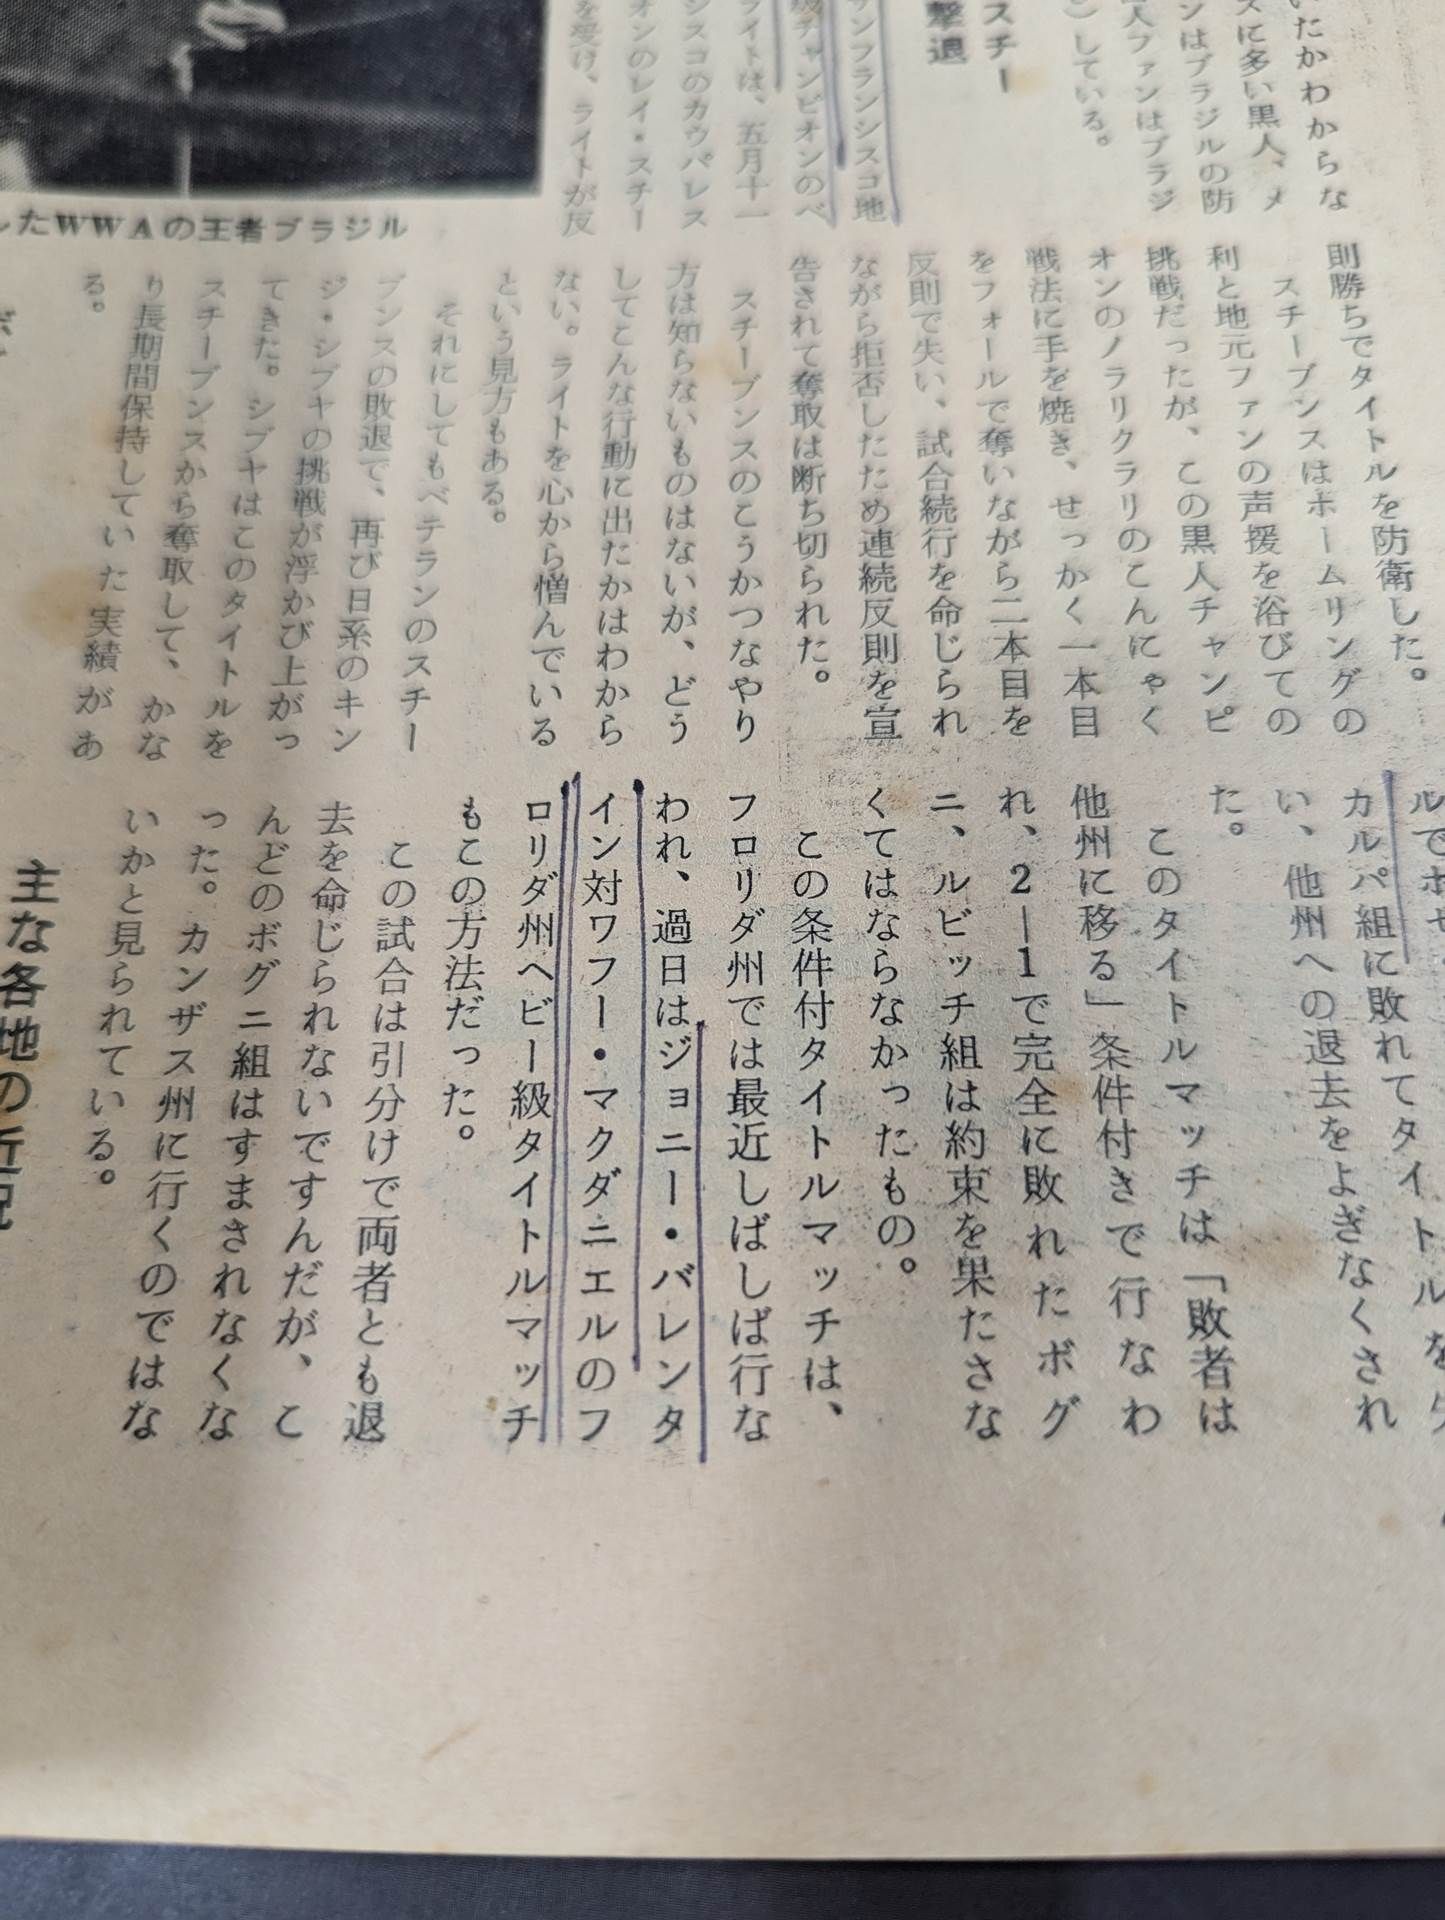 いたかわからな
スに多い黒人、メ
ンはブラジルの防
人ファンはブラジ
）している。
スチー
撃退
サンフランシスコ地
級チャンピオンのベ
ライトは、五月十一
シスコのカウパレス
オンのレイ・スチー
を受け、ライトが反
したWWAの王者ブラジル
則勝ちでタイトルを防衛した。
スチーブンスはホームリングの
利と地元ファンの声援を浴びての
挑戦だったが、この黒人チャンピ
オンのノラリクラリのこんにゃく
戦法に手を焼き、せっかく一本目
をフォールで奪いながら二本目を
反則で失い、試合続行を命じられ
ながら拒否したため連続反則を宣
告されて奪取は断ち切られた。
スチーブンスのこうかつなやり
方は知らないものはないが、どう
してこんな行動に出たかはわから
ない。ライトを心から憎んでいる
という見方もある。
それにしてもベテランのスチー
ブンスの敗退で、再び日系のキン
ジ・シブヤの挑戦が浮かび上がっ
てきた。シブヤはこのタイトルを
スチーブンスから奪取して、かな
り長期間保持していた実績があ
る。
カルパ組に敗れてタイトルをク
い、他州への退去をよぎなくされ
た。
このタイトルマッチは「敗者は
他州に移る」条件付きで行なわ
れ、2―1で完全に敗れたボグ
ニ、ルビッチ組は約束を果たさな
くてはならなかったもの。
この条件付タイトルマッチは、
フロリダ州では最近しばしば行な
われ、過日はジョニー・バレンタ
イン対ワフー・マクダニエルのフ
ロリダ州ヘビー級タイトルマッチ
もこの方法だった。
この試合は引分けで両者とも退
去を命じられないですんだが、こ
んどのボグニ組はすまされなくな
った。カンザス州に行くのではな
いかと見られている。
主な各地の近況